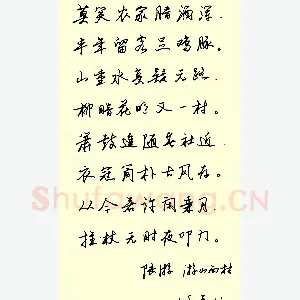 莫笑农家腊酒浑
丰年留客足鸡豚
山重水复疑无路
柳暗花明又一村
箫鼓追随春社近
衣冠简朴古风存
从今若许闲乘月
拄杖无时夜叩门
陆游 游山西村
Shufawang.CN